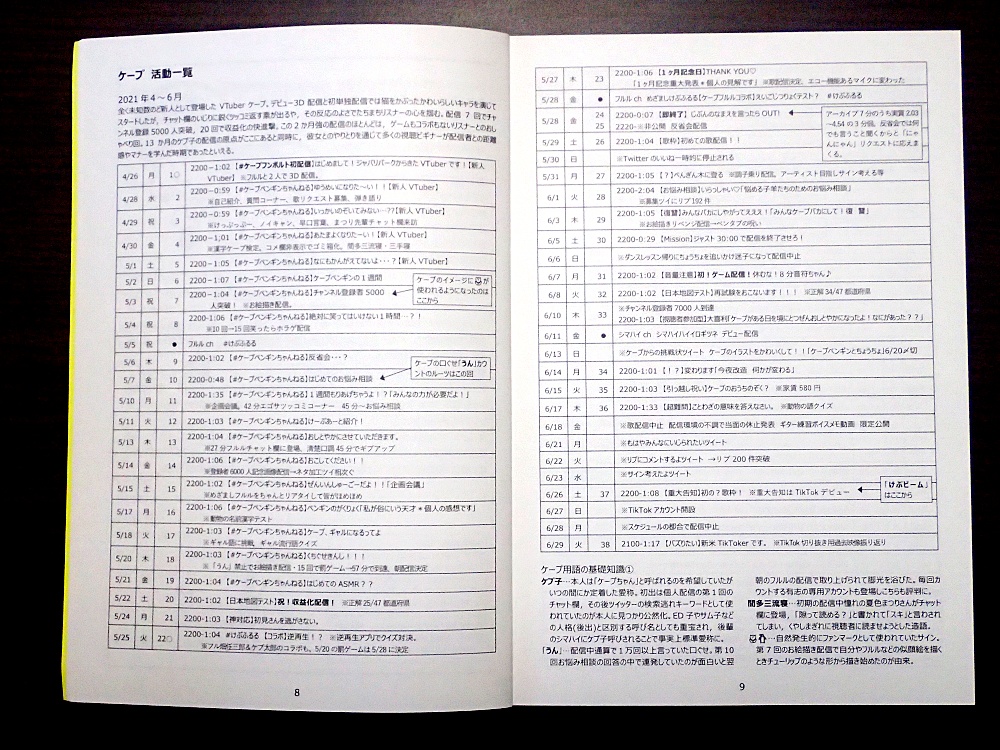 ケープ 活動一覧
2021年4～6月
全く未知数のど新人として登場した VTuber ケープ。デビュー3D 配信と初単独配信では猫をかぶったかわいらしいキャラを演じて
スタートしたが、チャット欄のいじりに鋭くツッコミ返す素が出るや、その反応のよさでたちまちリスナーの心を掴む。配信 7 回でチャ
ンネル登録 5000 人突破、20 回で収益化の快進撃。この2か月強の配信のほとんどは、ゲームもコラボもないリスナーとのおし
ゃべり回。13 か月のケプ子の配信の原点がここにあると同時に、彼女とのやりとりを通じて多くの視聴ビギナーが配信者との距離
感やマナーを学んだ時期であったといえる。
4/26 月 1○ 2200－1:02【#ケープフンボルト初配信】はじめまして！ジャパリパークからきた VTuber です！【新人
VTuber】 ※フルルと2人で3D 配信。
4/28 水 2 2200－0:59【#ケープペンギンちゃんねる】ゆうめいになりた～い！！【新人 VTuber】
※自己紹介、質問コーナー、歌リクエスト募集、弾き語り
4/29 祝 3 2200－0:59【#ケープペンギンちゃんねる】いっかいのぞいてみない…??【新人 VTuber】
※けっぷっぷー、ノイキャン、早口言葉、まつり先輩チャット欄来訪
4/30 金 4 2200－1:01【#ケープペンギンちゃんねる】あたまよくなりた～い！【新人 VTuber】
※漢字ケープ検定。コメ欄非表示でゴミ箱化。間多三流寝・三手寝
5/1 土 5 2200－1:05【#ケープペンギンちゃんねる】なにもかんがえてないよ・・・？【新人 VTuber】
5/2 日 6 2200－1:07【#ケープペンギンちゃんねる】ケープペンギンの1週間
5/3 祝 7 2200－1:04【#ケープペンギンちゃんねる】チャンネル登録者 5000
人突破！ ※お絵描き配信。
ケープのイメージに が
使われるようになったのは
ここから
5/4 祝 8 2200－1:04【#ケープペンギンちゃんねる】絶対に笑ってはいけない1時間…？！
※10 回→15 回笑ったらホラゲ配信
5/5 祝 ● フルル ch #けぷふるる
5/6 木 9 2200-1:02【#ケープペンギンちゃんねる】反省会・・・？
5/7 金 10 2200-0:48【#ケープペンギンちゃんねる】はじめてのお悩み相談
ケープの口ぐせ「うん」カウ
ントのルーツはこの回
5/10 月 11 2200-1:35【#ケープペンギンちゃんねる】1 週間もりあげちゃうよ！？「みんなの力が必要だよ！」
※企画会議。42 分エゴサツッコミコーナー 45 分～お悩み相談
5/11 火 12 2200-1:03【#ケープペンギンちゃんねる】けーぷあーと紹介！
5/13 木 13 2200-1:04【#ケープペンギンちゃんねる】おしとやかにさせていただきます。
※27 分フルルチャット欄に登場、清楚口調 45 分でギブアップ
5/14 金 14 2200-1:06【#ケープペンギンちゃんねる】おこしてください！！
※登録者 6000 人記念画像配信→ネタ加工ツイ相次ぐ
5/15 土 15 2200-1:02【#ケープペンギンちゃんねる】ぜんいんしゅーごーだよ！！「企画会議」
※めざましフルルをちゃんとリアタイして皆がほめほめ
5/17 月 16 2200-1:06【#ケープペンギンちゃんねる】ペンギンのがくりょく「私が俗にいう天才＊個人の感想です」
※動物の名前漢字テスト
5/18 火 17 2200-1:03【#ケープペンギンちゃんねる】ケープ、ギャルになるってよ
※ギャル語に挑戦、ギャル流行語クイズ
5/20 木 18 2200-1:03【#ケープペンギンちゃんねる】くちぐせきんし！！！
※「うん」禁止でお絵描き配信・15 回で罰ゲーム→57 分で到達、朝配信決定
5/21 金 19 2200-1:04【#ケープペンギンちゃんねる】はじめての ASMR？？
5/22 土 20 2200-1:02【日本地図テスト】祝！収益化配信！ ※正解 25/47 都道府県
5/24 月 21 2200-1:03【神対応】初見さんを逃がさない。
5/25 火 22○ 2200-1:04 #けぷふるる 【コラボ】逆再生！？ ※逆再生アプリでクイズ対決。
※フル畑任三郎＆ケプ太郎のコラボも。5/20 の罰ゲームは 5/28 に決定
8
5/27 木 23 2200-1:06【1ヶ月記念日】THANK YOU♡
「1ヶ月記念重大発表＊個人の見解です」 ※歌配信決定、エコー機能あるマイクに変わった
5/28 金 ● フルル ch めざましけぷふるる【ケープフルルコラボ】えいごしりつょくテスト？ #けぷふるる
5/28 金 24 2200-0:07【即終了】じぶんのなまえを言ったら OUT!
25 2220-※非公開 反省会配信
アーカイブ 7 分のうち実質 2:03
～4:54 の 3 分弱。反省会では何
でも言うこと聞くからと「にゃ
んにゃん」リクエストに応えま
くる。
5/29 土 26 2200-1:04【歌枠】初めての歌配信！！
5/30 日 ※Twitter のいいね一時的に停止される
5/31 月 27 2200-1:05【？】ぺんぎん木に登る ※調子乗り配信。アーティスト目指しサイン考える等
6/1 火 28 2200-2:04【お悩み相談】いらっしゃい♡「悩める子羊たちのためのお悩み相談」
※募集ツイにリプ 192 件
6/3 木 29 2200-1:05【復讐】みんなバカにしやがってえええ！「みんなケープバカにして！復 讐」
※お絵描きリベンジ配信→ペンタブの呪い
6/5 土 30 2200-0:29【Mission】ジャスト 30:00 で配信を終了させろ！
6/6 日 ※ダンスレッスン帰りにちょうちょを追いかけ迷子になって配信中止
6/7 月 31 2200-1:02【音量注意】初！ゲーム配信！休むな！8 分音符ちゃん♪
6/8 火 32 2200-1:02【日本地図テスト】再試験をおこないます！！！ ※正解 34/47 都道府県
6/10 木 33 ※チャンネル登録者 7000 人到達
2200-1:03【視聴者参加型】大喜利「ケープがある日を境にとつぜんおしとやかになったよ！なにがあった？？」
6/11 金 ● シマハイ ch シマハイハイイロギツネ デビュー配信
6/13 日 ※ケープからの挑戦状ツイート ケープのイラストをかわいくして！！「ケープペンギンとちょうちょ」6/20〆切
6/14 月 34 2200-1:01【！？】変わります「今夜改造 何かが変わる」
6/15 火 35 2200-1:03【引っ越し祝い】ケープのおうちのぞく？ ※家賃 580 円
6/17 木 36 2200-1:33【超難問】ことわざの意味を答えなさい。 ※動物の語クイズ
6/18 金 ※歌配信中止 配信環境の不調で当面の休止発表 ギター練習ボイスメモ動画 限定公開
6/21 月 ※もはやみんなにいじられたいツイート
6/22 火 ※リプにコメントするよツイート →リプ 200 件突破
6/23 水 ※サイン考えたよツイート
6/26 土 37 2200-1:08【重大告知】初の？歌枠！ ※重大告知は TikTok デビュー
「けぷビーム」
はここから
6/27 日 ※TikTok アカウント開設
6/28 月 ※スケジュールの都合で配信中止
6/29 火 38 2100-1:17【バズりたい】新米 TikToker です。 ※TikTok 切り抜き用過去映像振り返り
ケープ用語の基礎知識①
ケプ子…本人は「ケープちゃん」と呼ばれるのを希望していたが
いつの間にか定着した愛称。初出は個人配信の第1回の
チャット欄、その後ツイッターの検索逃れキーワードとして使
われていたのが本人に見つかり公然化。ED 子やサム子など
の人格(後出)と区別する呼び名としても重宝され、後輩
のシマハイにケプ子呼びされることで事実上標準愛称に。
「うん」…配信中通算で1万回以上言っていた口ぐせ。第 10
回お悩み相談の回答の中で連発していたのが面白いと翌
朝のフルルの配信で取り上げられて脚光を浴びた。毎回カ
ウントする有志の専用アカウントも登場しこちらも評判に。
間多三流寝…初期の配信中憧れの夏色まつりさんがチャット
欄に登場、「隙って読める？」と書かれて「スキ」と言わされ
てしまい、くやしまぎれに視聴者に読ませようとした造語。
…自然発生的にファンマークとして使われていたサイン。
第 7 回のお絵描き配信で自分やフルルなどの似顔絵を描く
ときチューリップのような形から描き始めたのが由来。
9